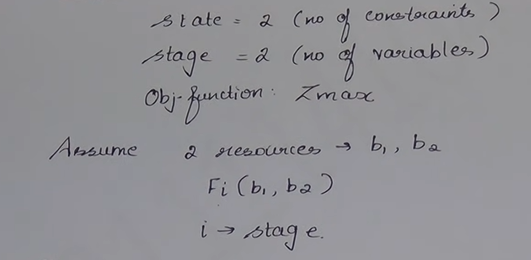 state = 2 (no of constraints)
stage = 2 (no of variables)
Obj-function: Zmax
Assume 2 resources → b₁, b₂
Fi (b₁, b₂)
i → stage.